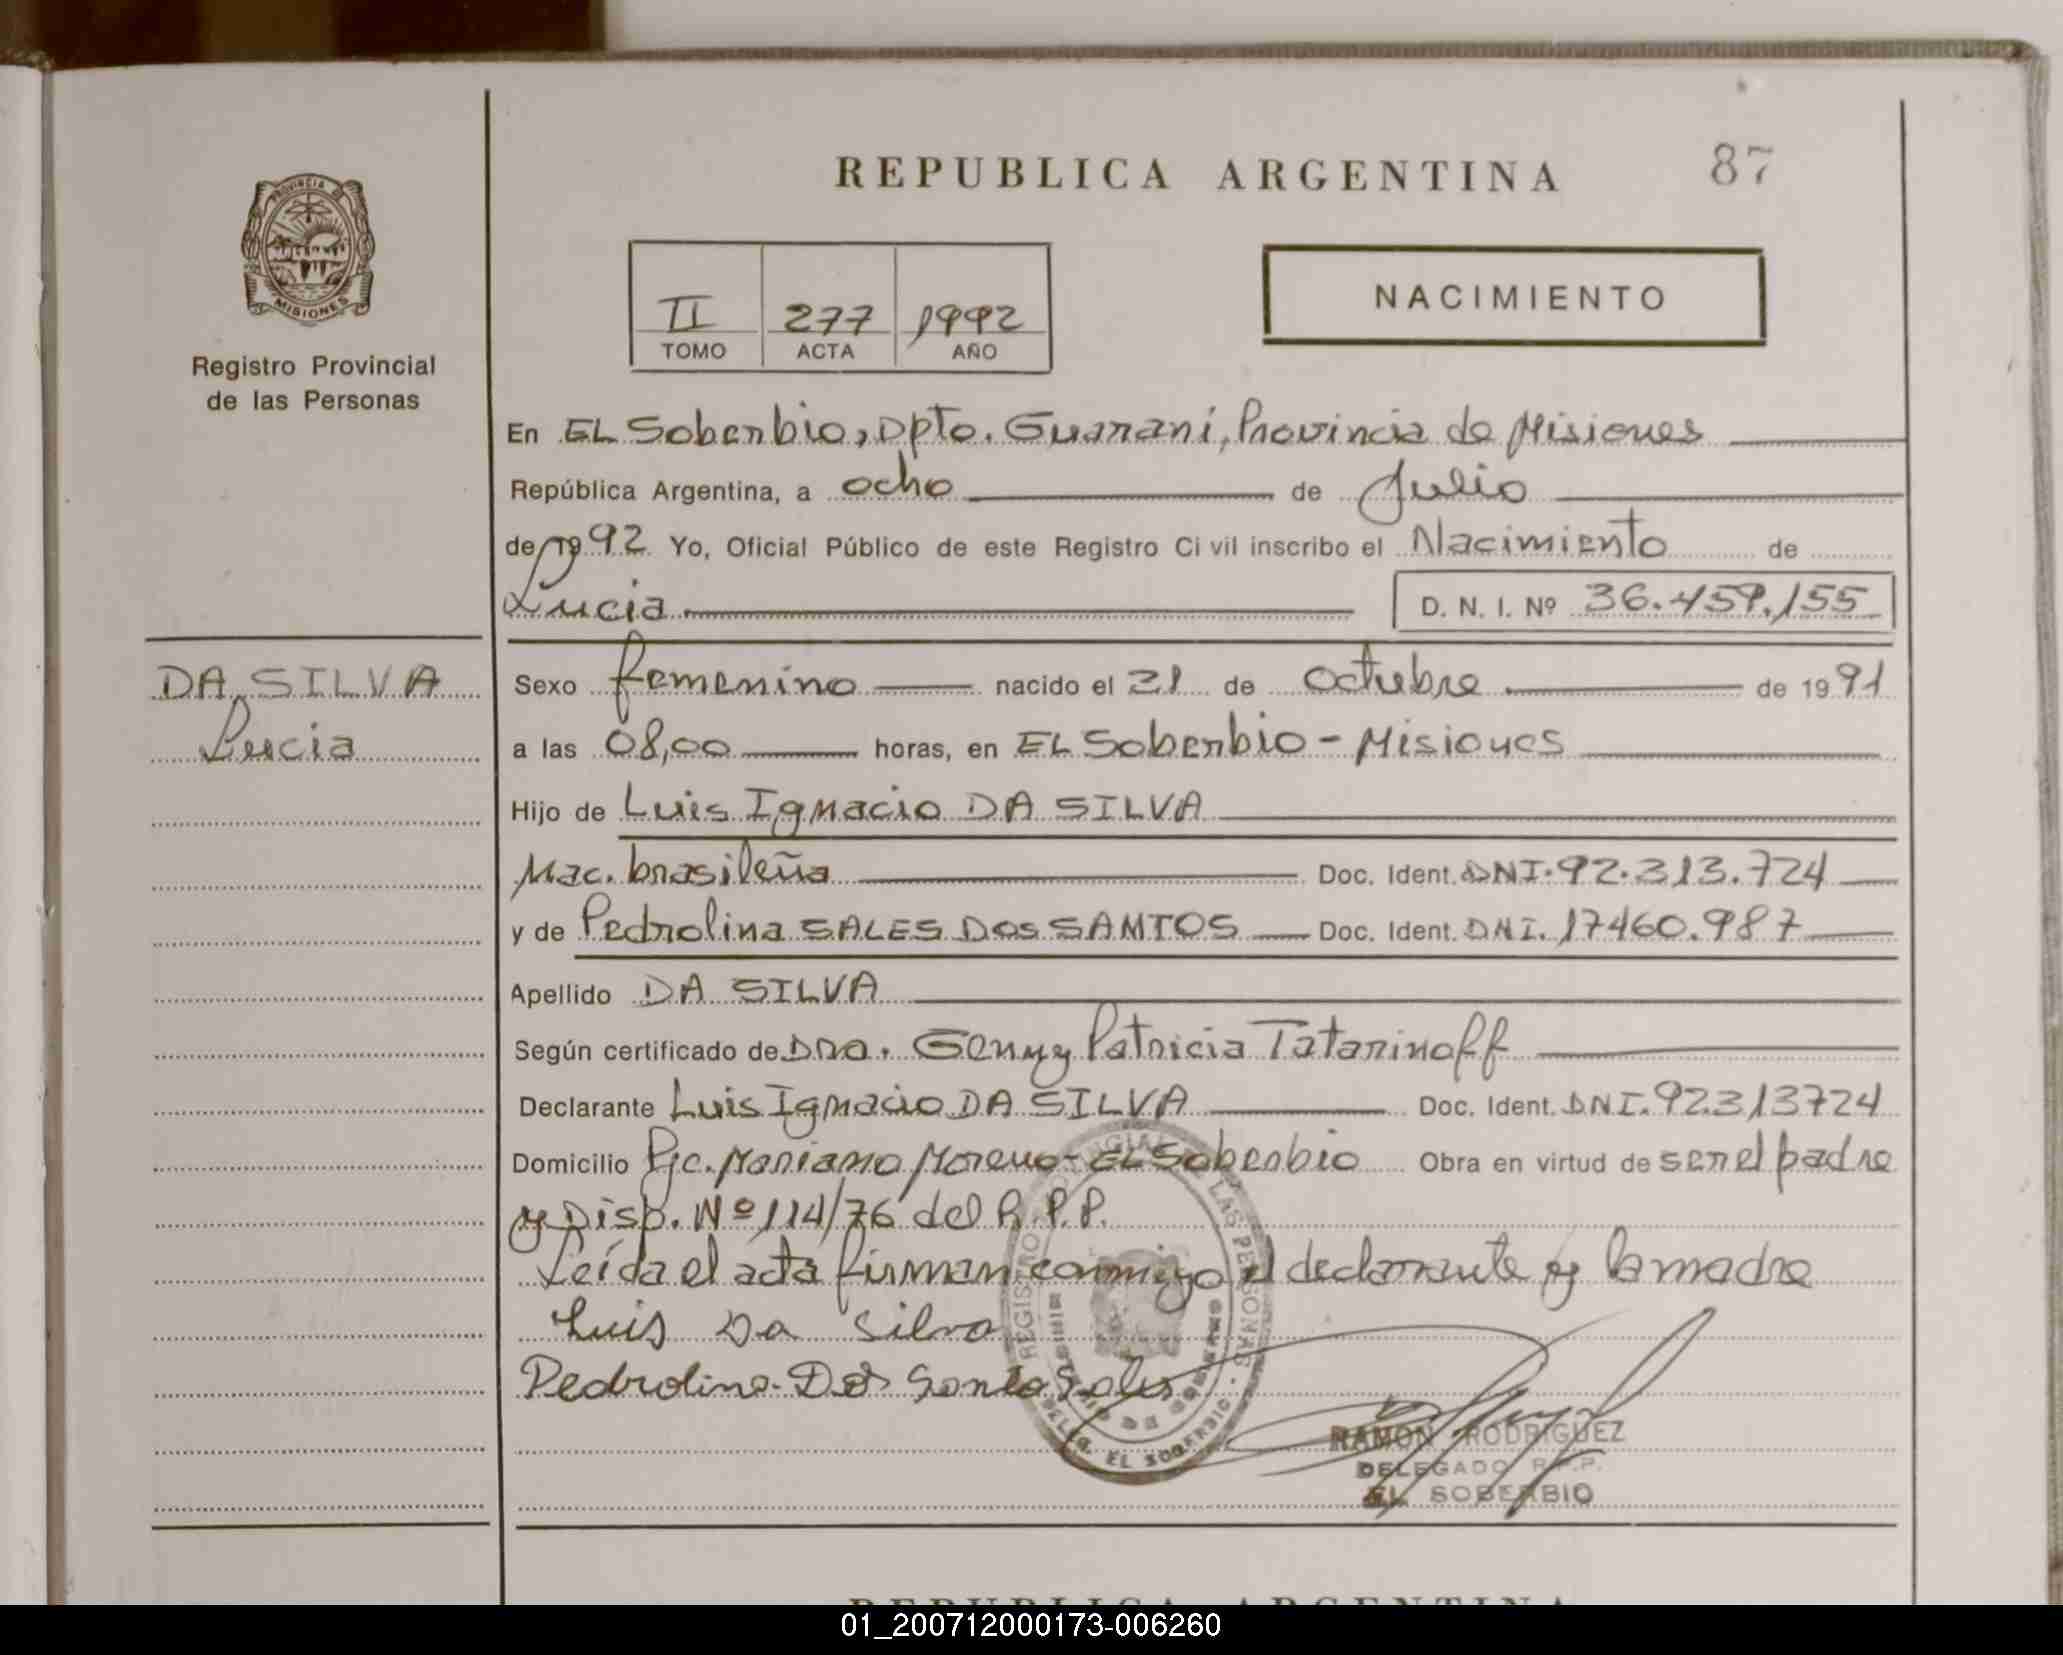 REPUBLICA ARGENTINA 87
PROVINCIA DE
MISIONES
Registro Provincial
de las Personas
II 277 1992
TOMO ACTA AÑO
NACIMIENTO
En EL Soberbio, Dpto. Guaraní, Provincia de Misiones
República Argentina, a ocho de Julio
de 1992 Yo, Oficial Público de este Registro Civil inscribo el Nacimiento de
Lucia D. N. I. Nº 36.459.155
DA SILVA
Lucia
Sexo femenino nacido el 21 de Octubre de 1991
a las 08,00 horas, en EL Soberbio - Misiones
Hijo de Luis Ignacio DA SILVA
Nac. brasileña Doc. Ident. DNI. 92.313.724
y de Pedrolina SALES DOS SANTOS Doc. Ident. DNI. 17460.987
Apellido DA SILVA
Según certificado de Dra. Genny Patricia Tatarinoff
Declarante Luis Ignacio DA SILVA Doc. Ident. DNI. 92313724
Domicilio Pje. Mariano Moreno - EL Soberbio Obra en virtud de ser el padre
y Disp. Nº 114/76 del R.P.P.
Leída el acta firman conmigo el declarante y la madre
Luis Da Silva
Pedrolina Dos Santos Sales
REGISTRO PROVINCIAL DE LAS PERSONAS
MINISTERIO DE GOBIERNO
DELEG. EL SOBERBIO
RAMON RODRIGUEZ
DELEGADO R.P.P.
EL SOBERBIO
REPUBLICA ARGENTINA
01_200712000173-006260